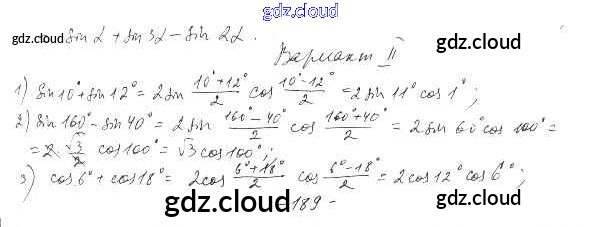 gdz.cloud
gdz.cloud sin α + sin 3α − sin 2α. gdz.cloud
Вариант II
1) sin 10° + sin 12° = 2 sin (10°+12°)/2 cos (10°−12°)/2 = 2 sin 11° cos 1°;
2) sin 160° − sin 40° = 2 sin (160°−40°)/2 cos (160°+40°)/2 = 2 sin 60° cos 100° =
= 2 · √3/2 cos 100° = √3 cos 100°;
3) cos 6° + cos 18° = 2 cos (6°+18°)/2 cos (6°−18°)/2 = 2 cos 12° cos 6°;
gdz.cloud 189 - gdz.cloud